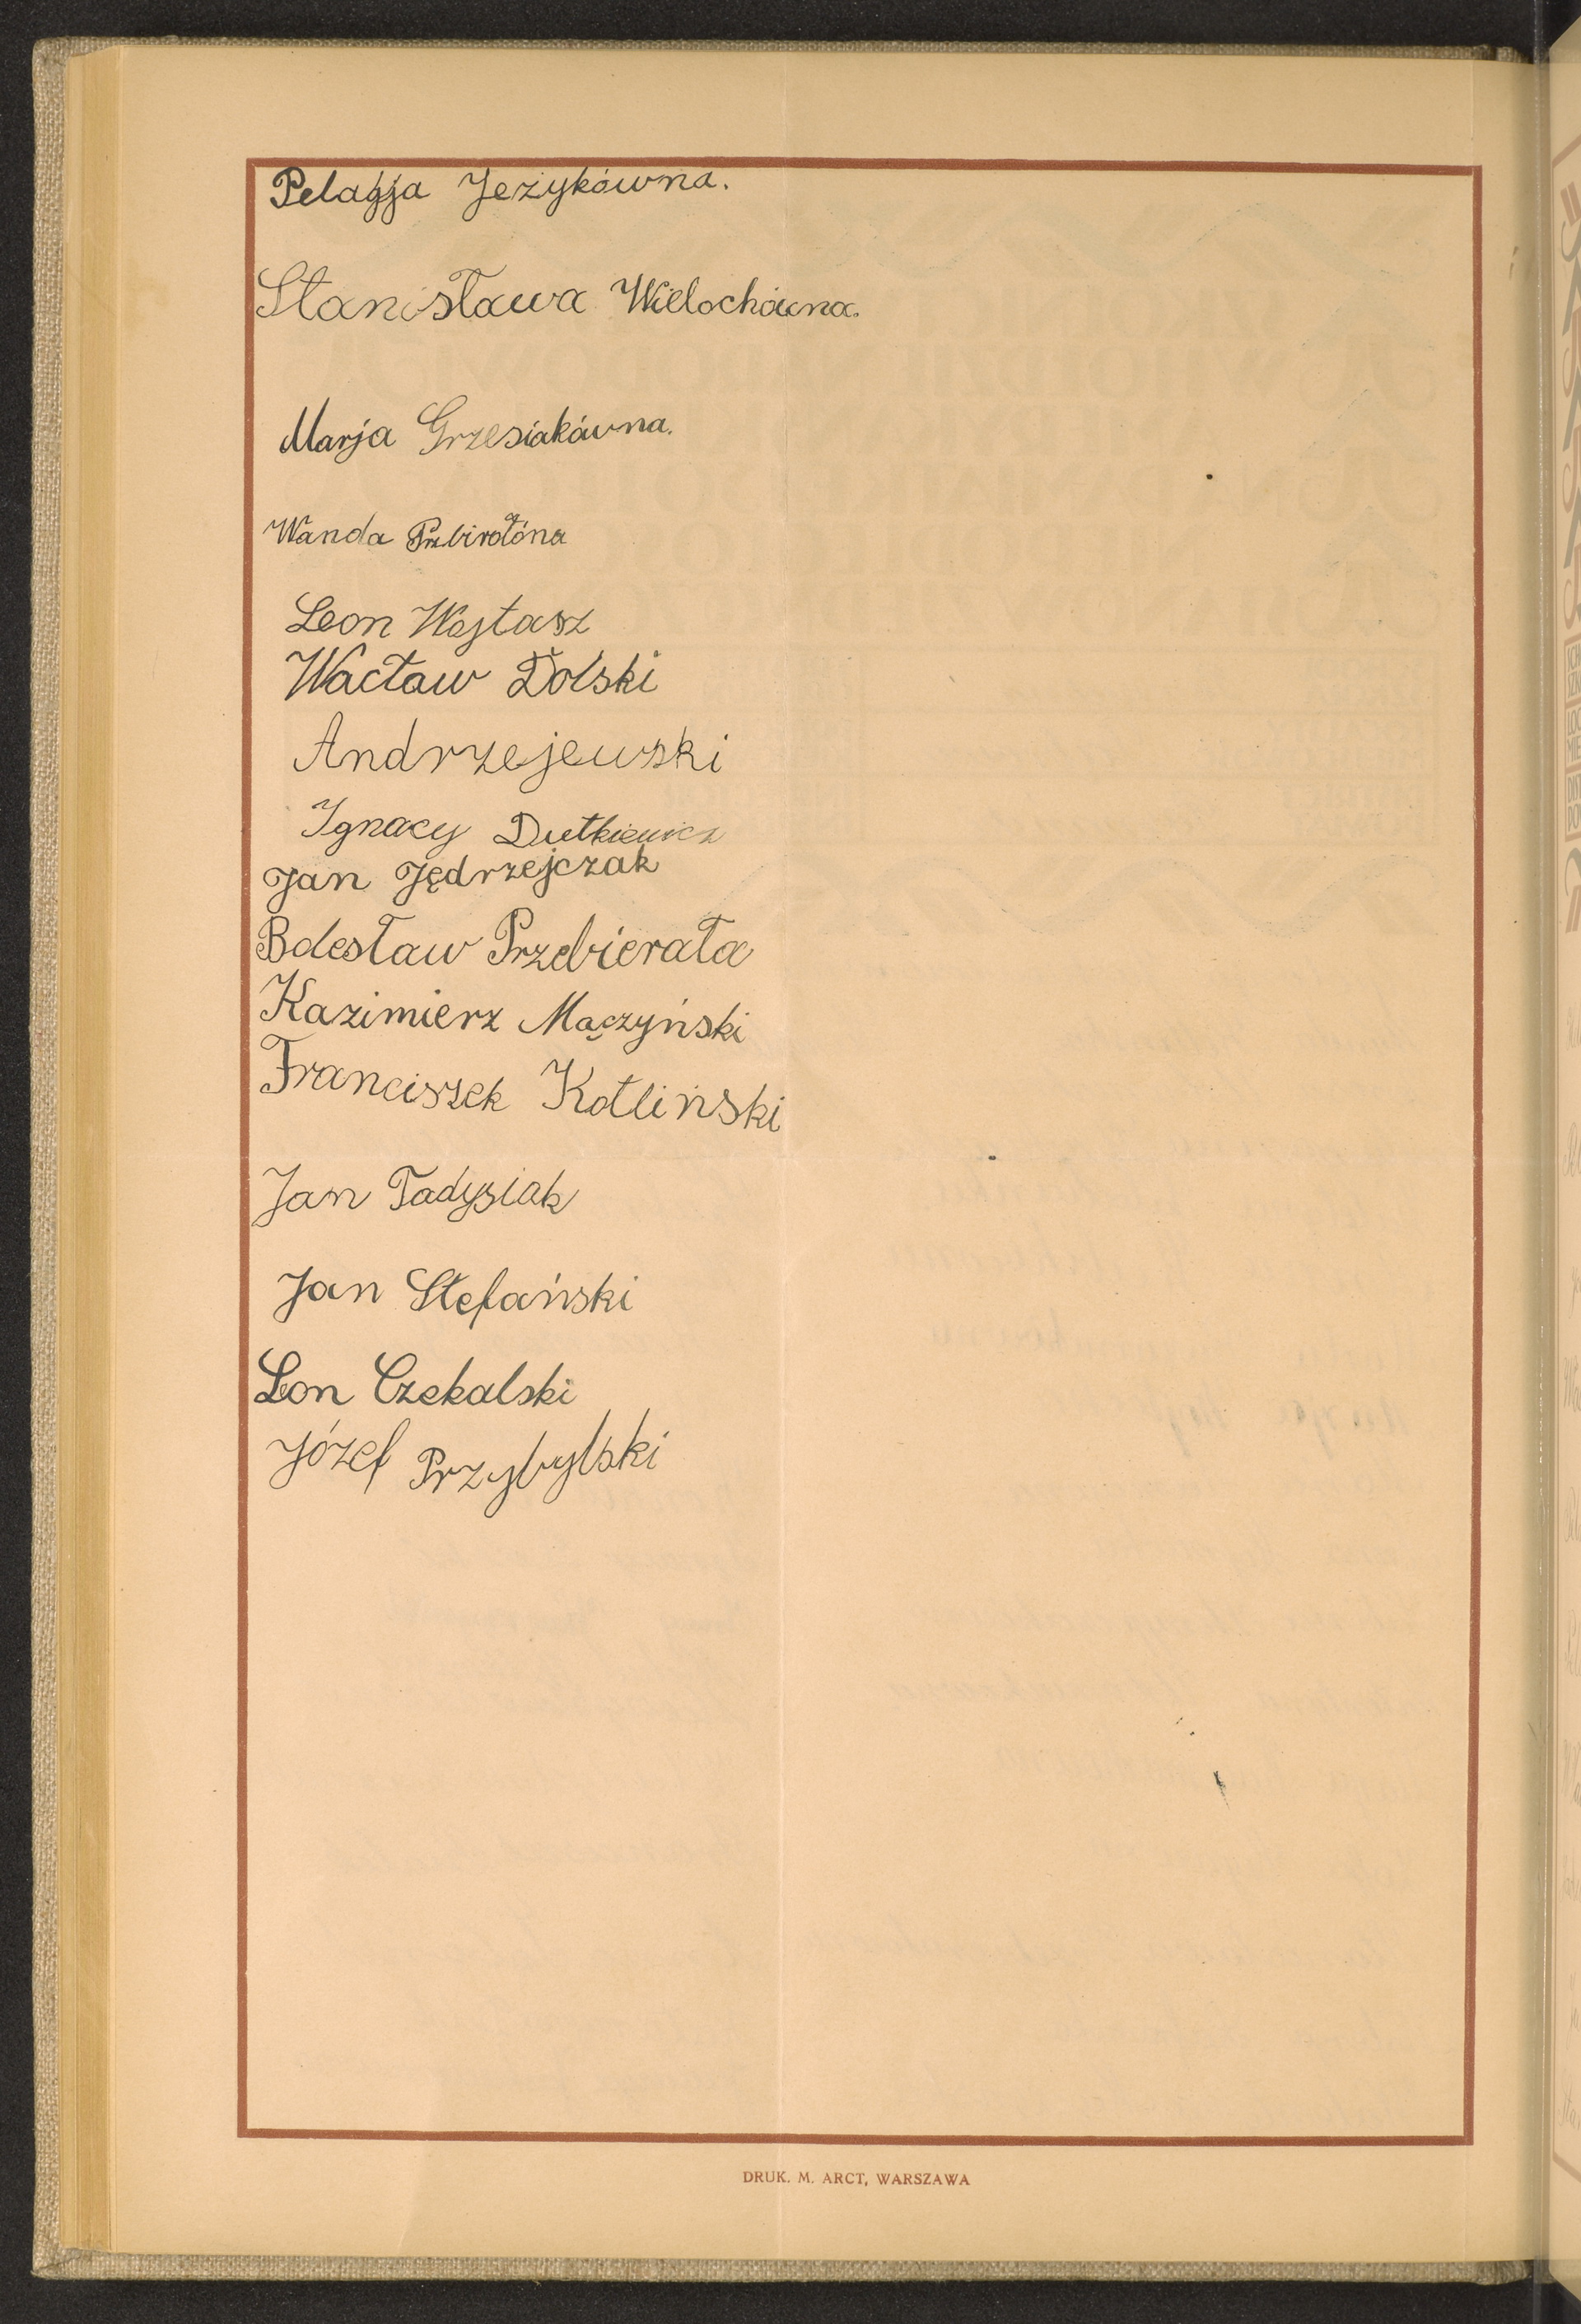 Pelagja Jeżykówna.
Stanisława Wielochówna.
Marja Grzesiakówna.
Wanda
Leon Wojtasz
Wacław Dolski
Andrzejewski
Ignacy Dutkiewicz
Jan Jędrzejczak
Bolesław Przebierała
Kazimierz Mączyński
Franciszek Kotliński
Jan Tadysiak
Jan Stefański
Leon Czekalski
Józef Przybylski
DRUK. M. ARCT, WARSZAWA